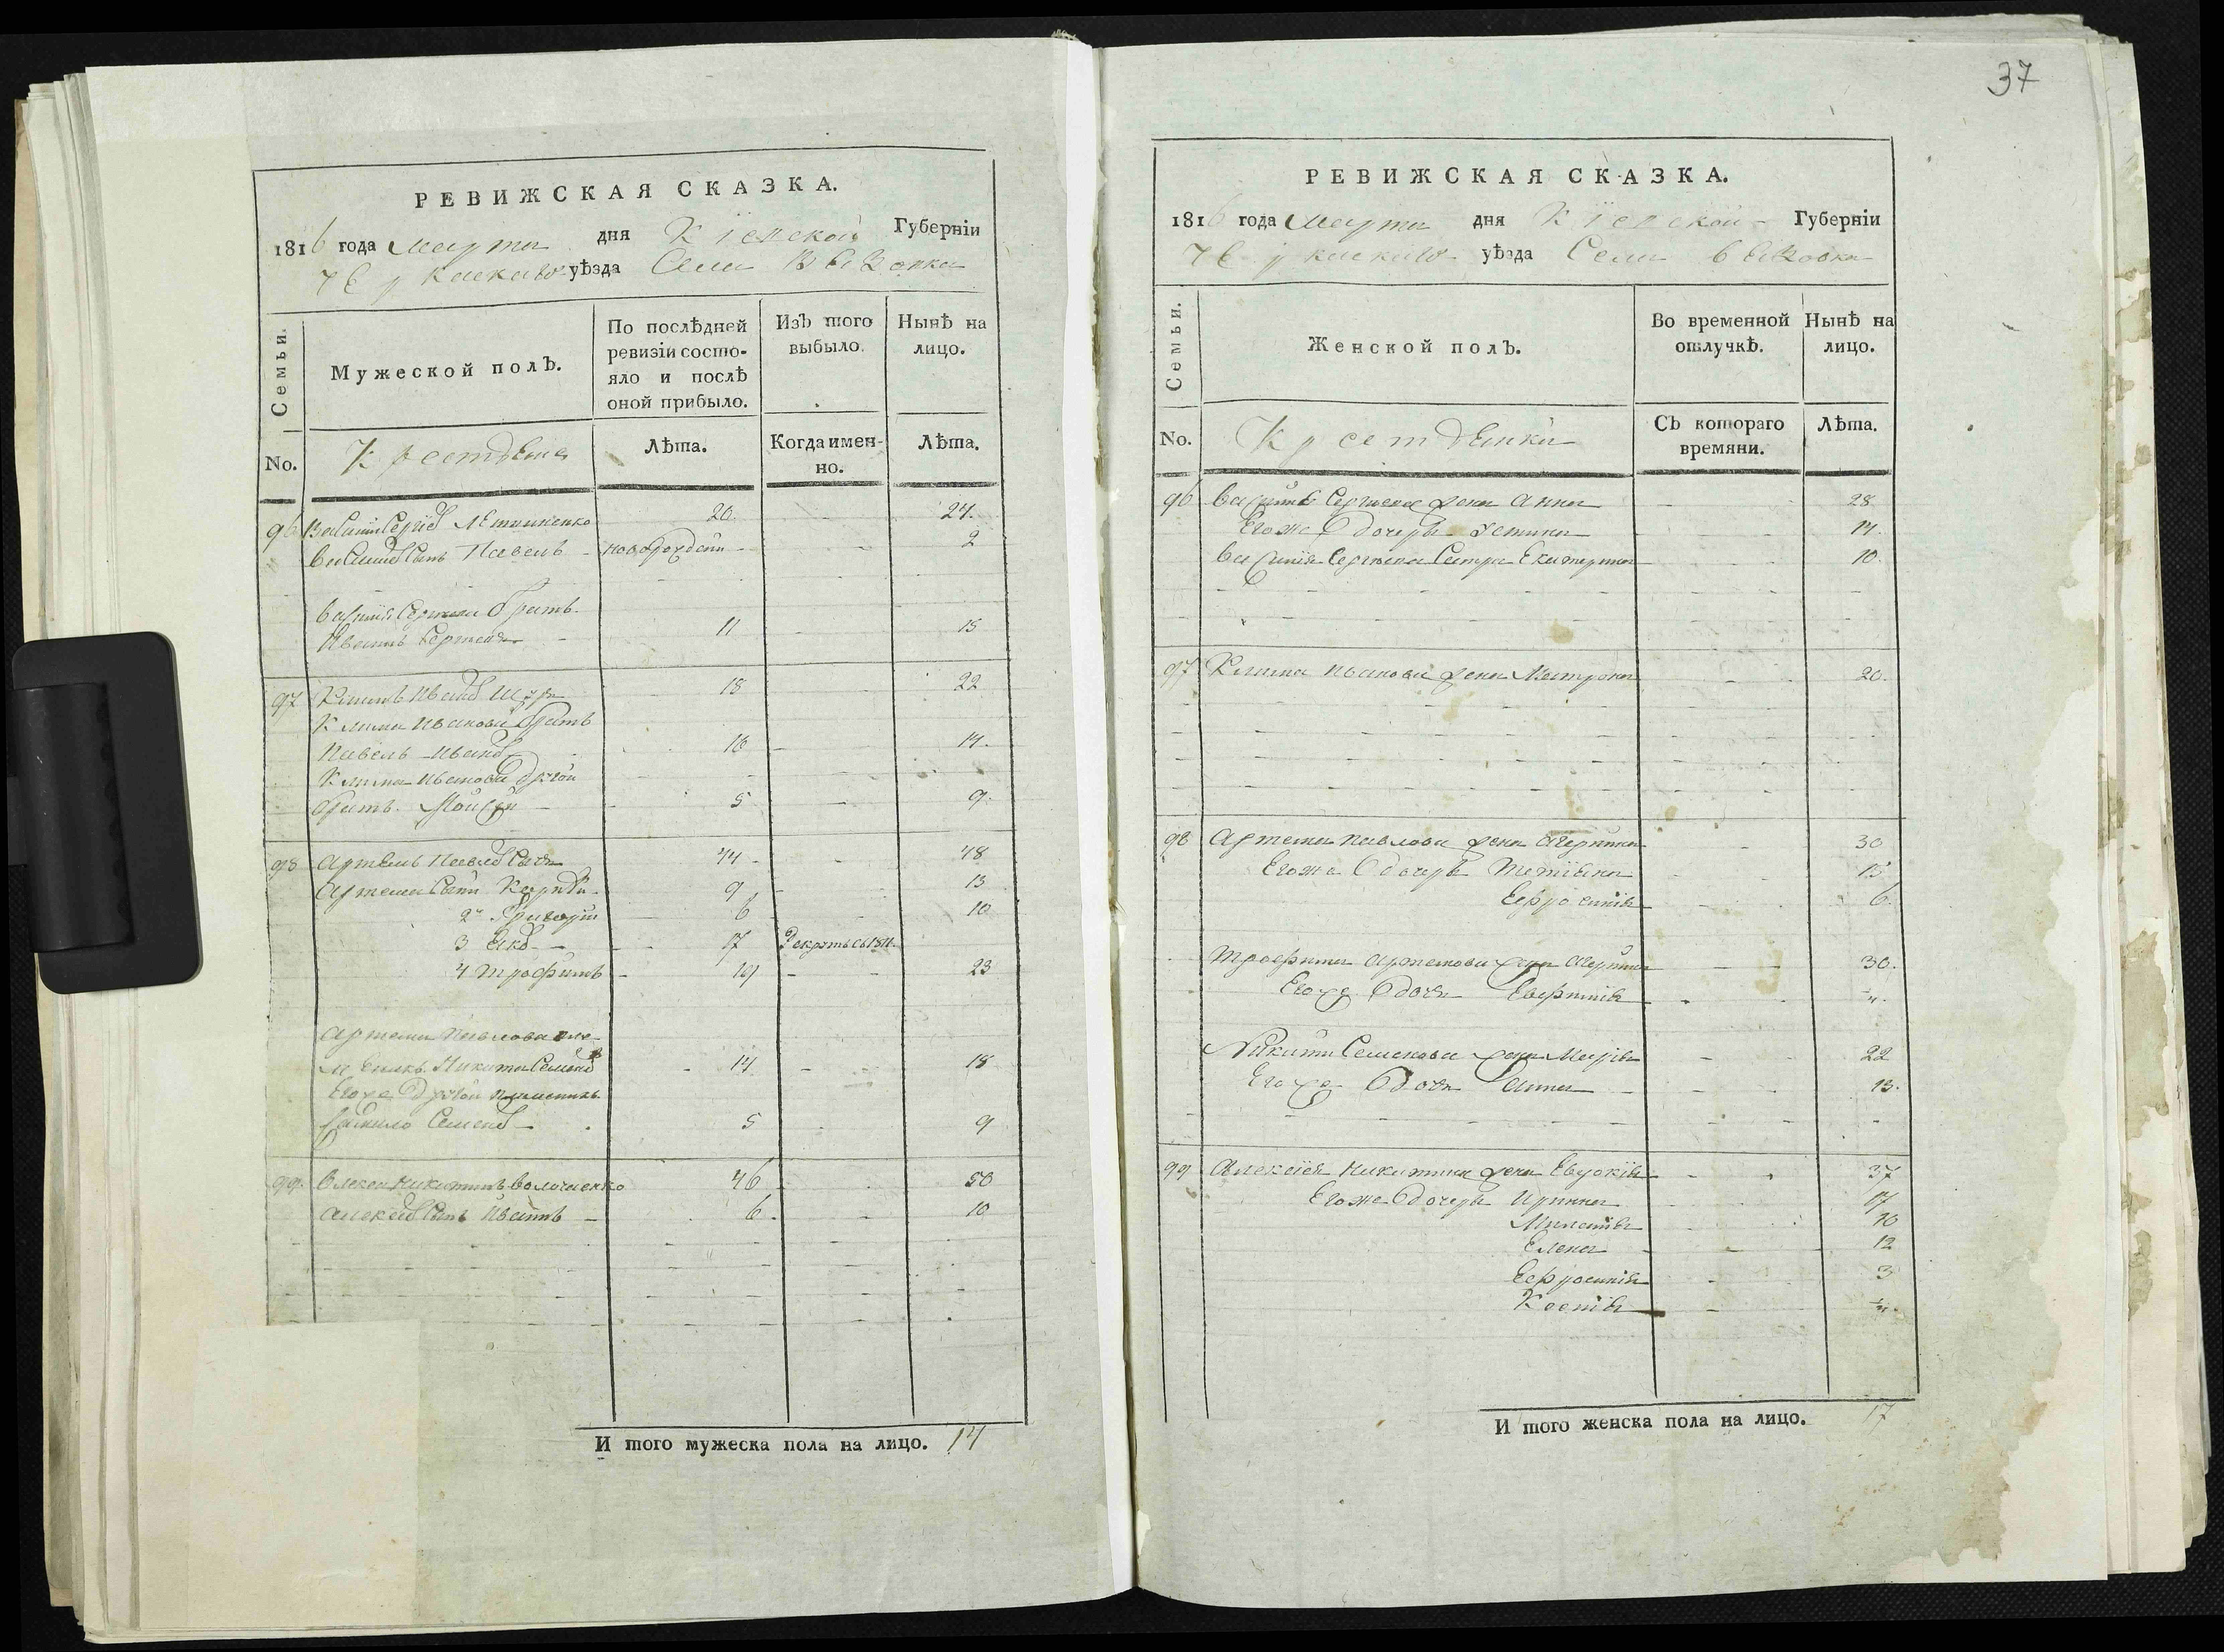 37
РЕВИЖСКАЯ СКАЗКА.
1816 года Марта дня Кіевской Губерніи
Черкаскаго уѣзда Села
Семьи.
Мужеской полъ.
По послѣдней ревизіи состо-
яло и послѣ
оной прибыло.
Изъ того выбыло.
Нынѣ на лицо.
No.
Крестьяне
Лѣта.
Когда имен-
но.
Лѣта.
96 Василій Сергіев 20. 24.
Василіев Сынъ Павелъ новорожден 2
Василія Сергіева братъ
Иванъ Сергіев 11 15
97 Климъ Иванов 18 22
Клима Иванова братъ
Павелъ Иванов 10 14.
Клима Иванова другой
братъ Мойсей 5 9.
98 Артемъ Павлов 44 48
Артема Сынъ 9 13
2й Григорій 6 10
3 Яков 17 Рекрутъ съ 1811
4 Трофимъ 19 23
Артема Павлова пле-
менникъ Никита Семенов 14 18
Егоже другой племеникъ
Данило Семенов 5 9
99. Алексей Никитинъ Волошенко 46 50
Алексеев Сынъ Иванъ 6 10
И того мужеска пола на лицо. 14
РЕВИЖСКАЯ СКАЗКА.
1816 года Марта дня Кіевской Губерніи
Черкаскаго уѣзда Села
Семьи.
Женской полъ.
Во временной отлучкѣ.
Нынѣ на лицо.
No.
Крестьянки
Съ котораго времяни.
Лѣта.
96 Василія Сергіева жена Анна 28
Егоже дочерь Устина 14.
Василія Сергіева Сестра Екатерина 10.
97 Клима Иванова жена Матрона 20.
98 Артема Павлова жена 30
Егоже дочерь Татіяна 15
Ефросинія 6.
Трофима Артемова жена 30.
Егоже дочь
Никити Семенова жена Марія 22
Егоже дочь Анна 13.
99 Алексія Никитина жена Евдокія 37
Егоже дочерь Ирина 17
Меланія 10
Елена 12
Ефросинія 3
Ксенія
И того женска пола на лицо. 17